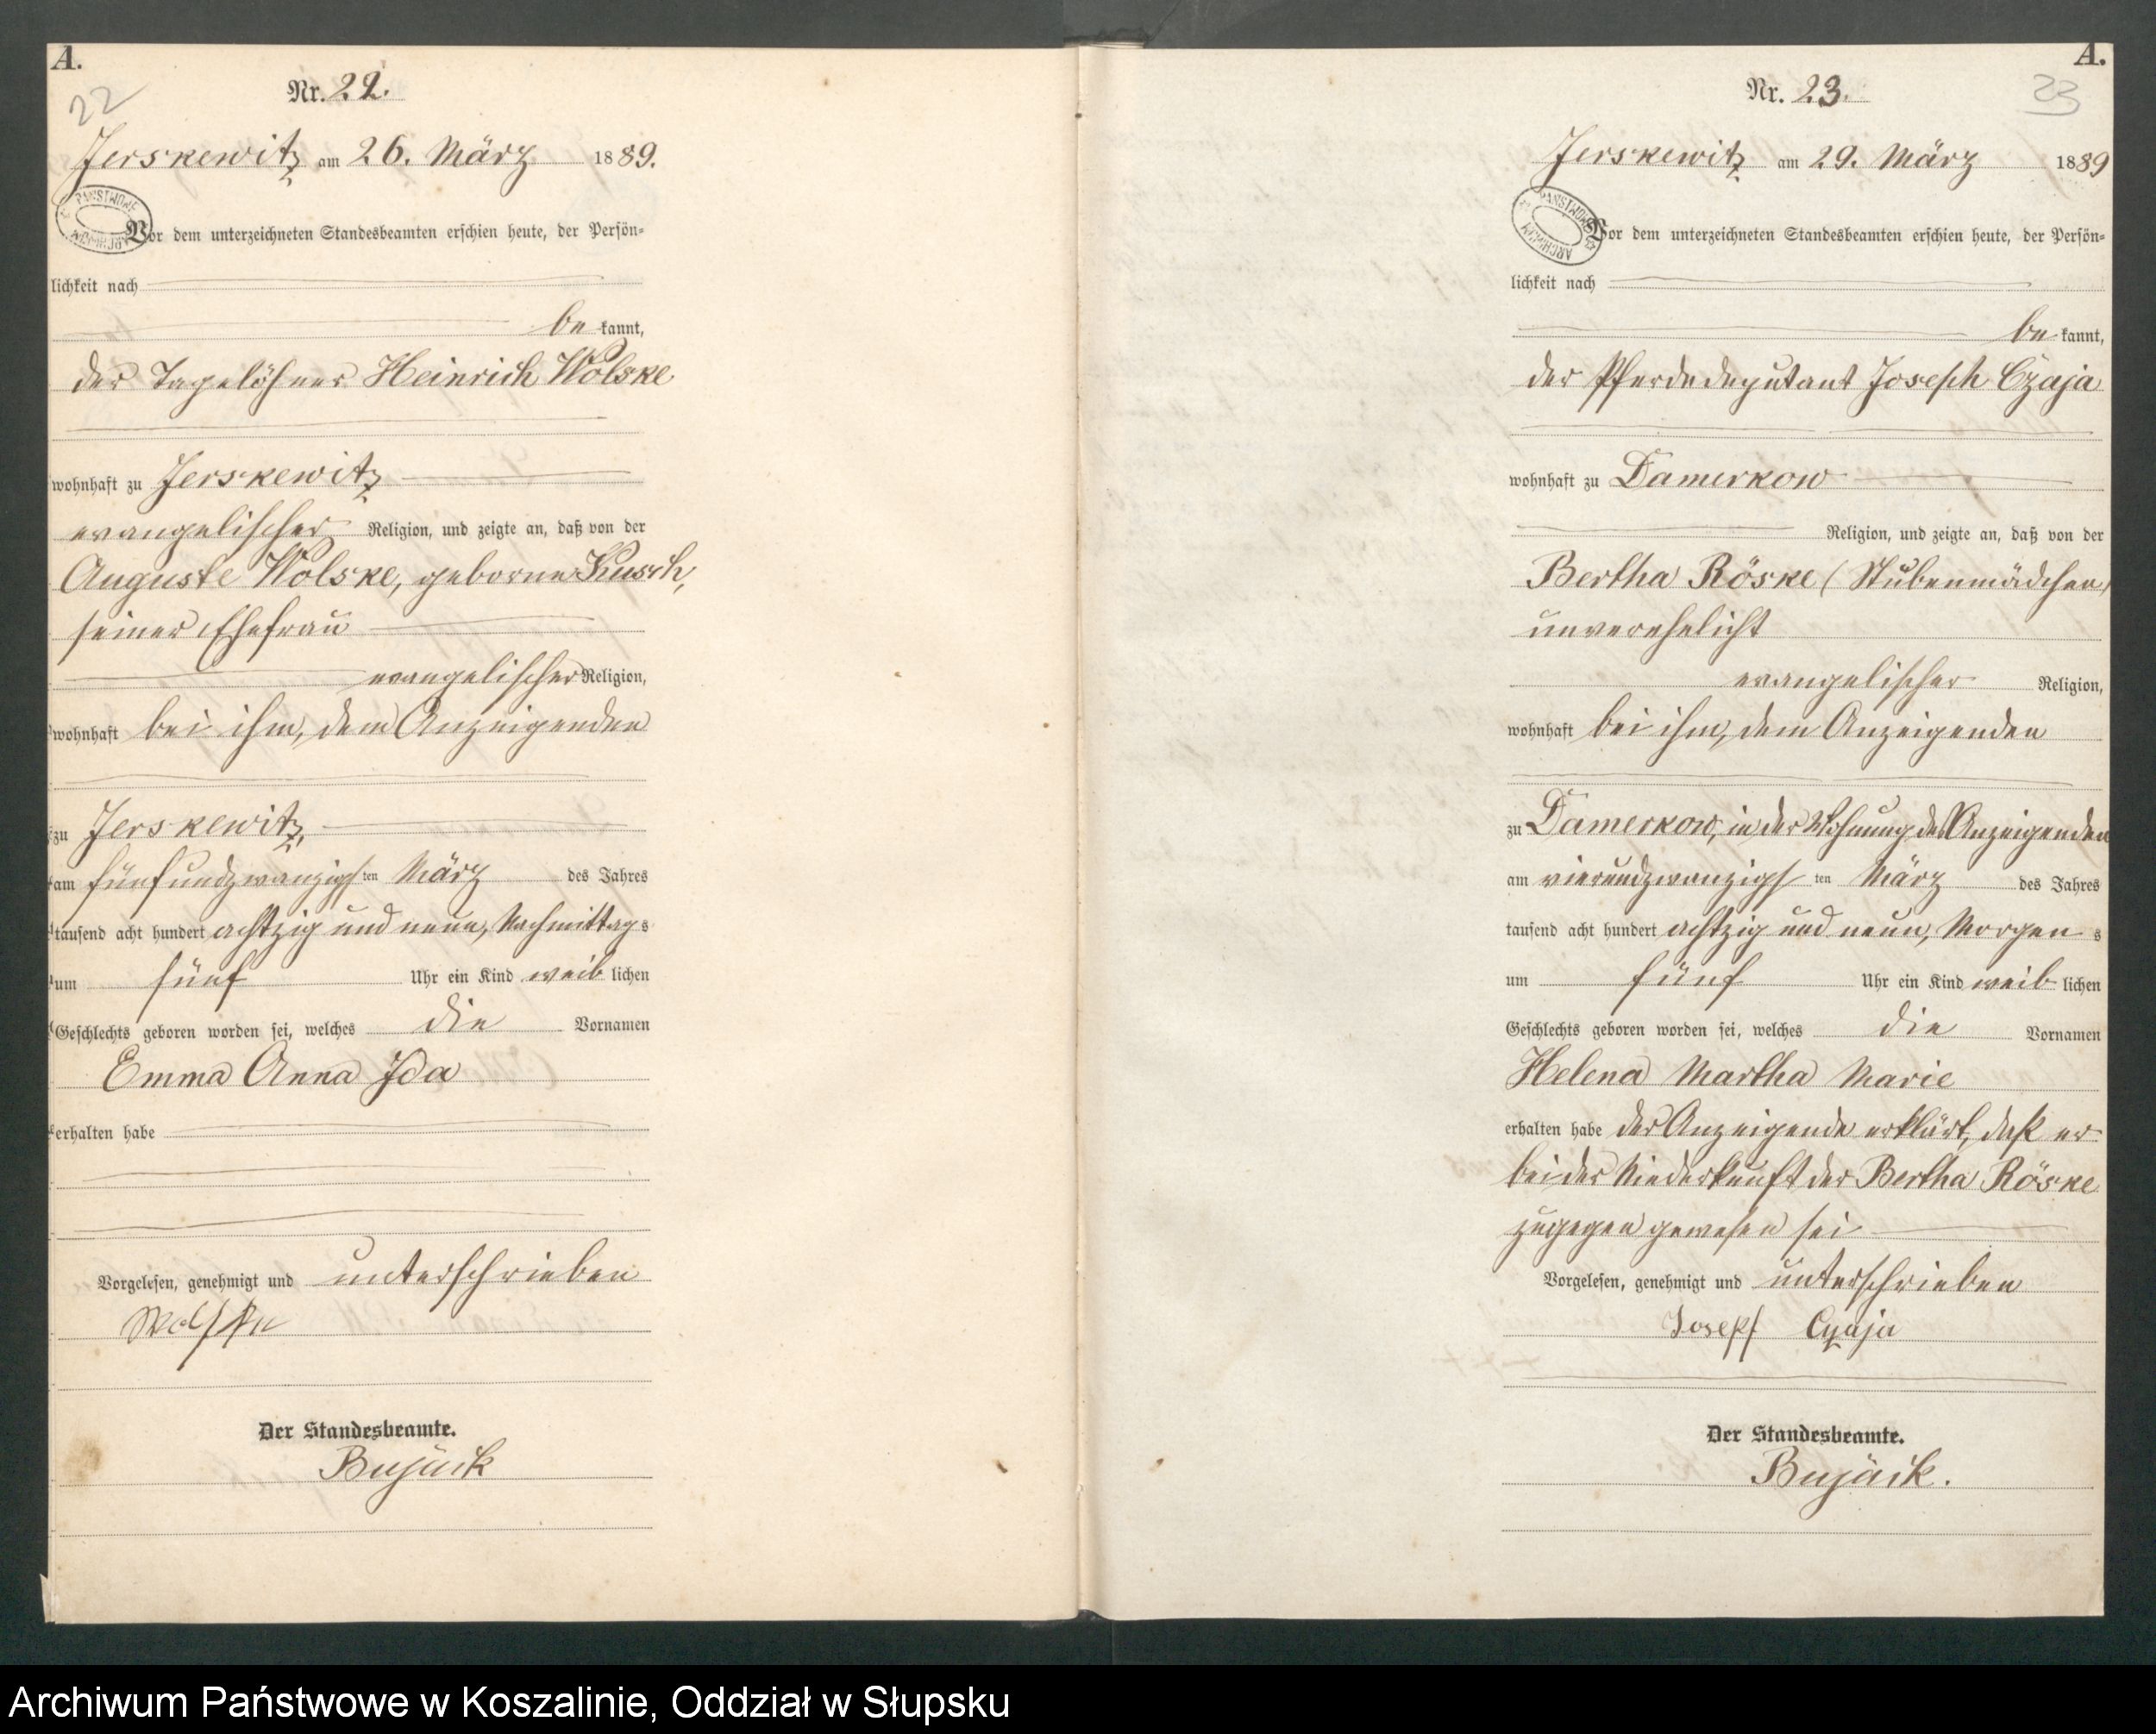 A.
22
Nr. 22.
Jerskewitz am 26. März 1889.
Vor dem unterzeichneten Standesbeamten erschien heute, der Persön=
lichkeit nach
be kannt,
der Tagelöhner Heinrich Wolske
wohnhaft zu Jerskewitz
evangelischer Religion, und zeigte an, daß von der
Auguste Wolske, geborne Kusch,
seiner Ehefrau
evangelischer Religion,
wohnhaft bei ihm, dem Anzeigenden
zu Jerskewitz,
am fünfundzwanzigsten März des Jahres
tausend acht hundert achtzig und neun, Nachmittags
um fünf Uhr ein Kind weiblichen
Geschlechts geboren worden sei, welches die Vornamen
Emma Anna Ida
erhalten habe
Vorgelesen, genehmigt und unterschrieben
Wolske
Der Standesbeamte.
Bujack
A.
23
Nr. 23.
Jerskewitz am 29. März 1889
Vor dem unterzeichneten Standesbeamten erschien heute, der Persön=
lichkeit nach
be kannt,
der Pferdedeputant Joseph Czaja
wohnhaft zu Damerkow
Religion, und zeigte an, daß von der
Bertha Röske (Stubenmädchen)
unverehelicht
evangelischer Religion,
wohnhaft bei ihm, dem Anzeigenden
zu Damerkow, in der Wohnung des Anzeigenden
am vierundzwanzigsten März des Jahres
tausend acht hundert achtzig und neun, Morgens
um fünf Uhr ein Kind weiblichen
Geschlechts geboren worden sei, welches die Vornamen
Helena Martha Marie
erhalten habe der Anzeigende erklärt, daß er
bei der Niederkunft der Bertha Röske
zugegen gewesen sei
Vorgelesen, genehmigt und unterschrieben
Josepf Czaja
Der Standesbeamte.
Bujack.
Archiwum Państwowe w Koszalinie, Oddział w Słupsku